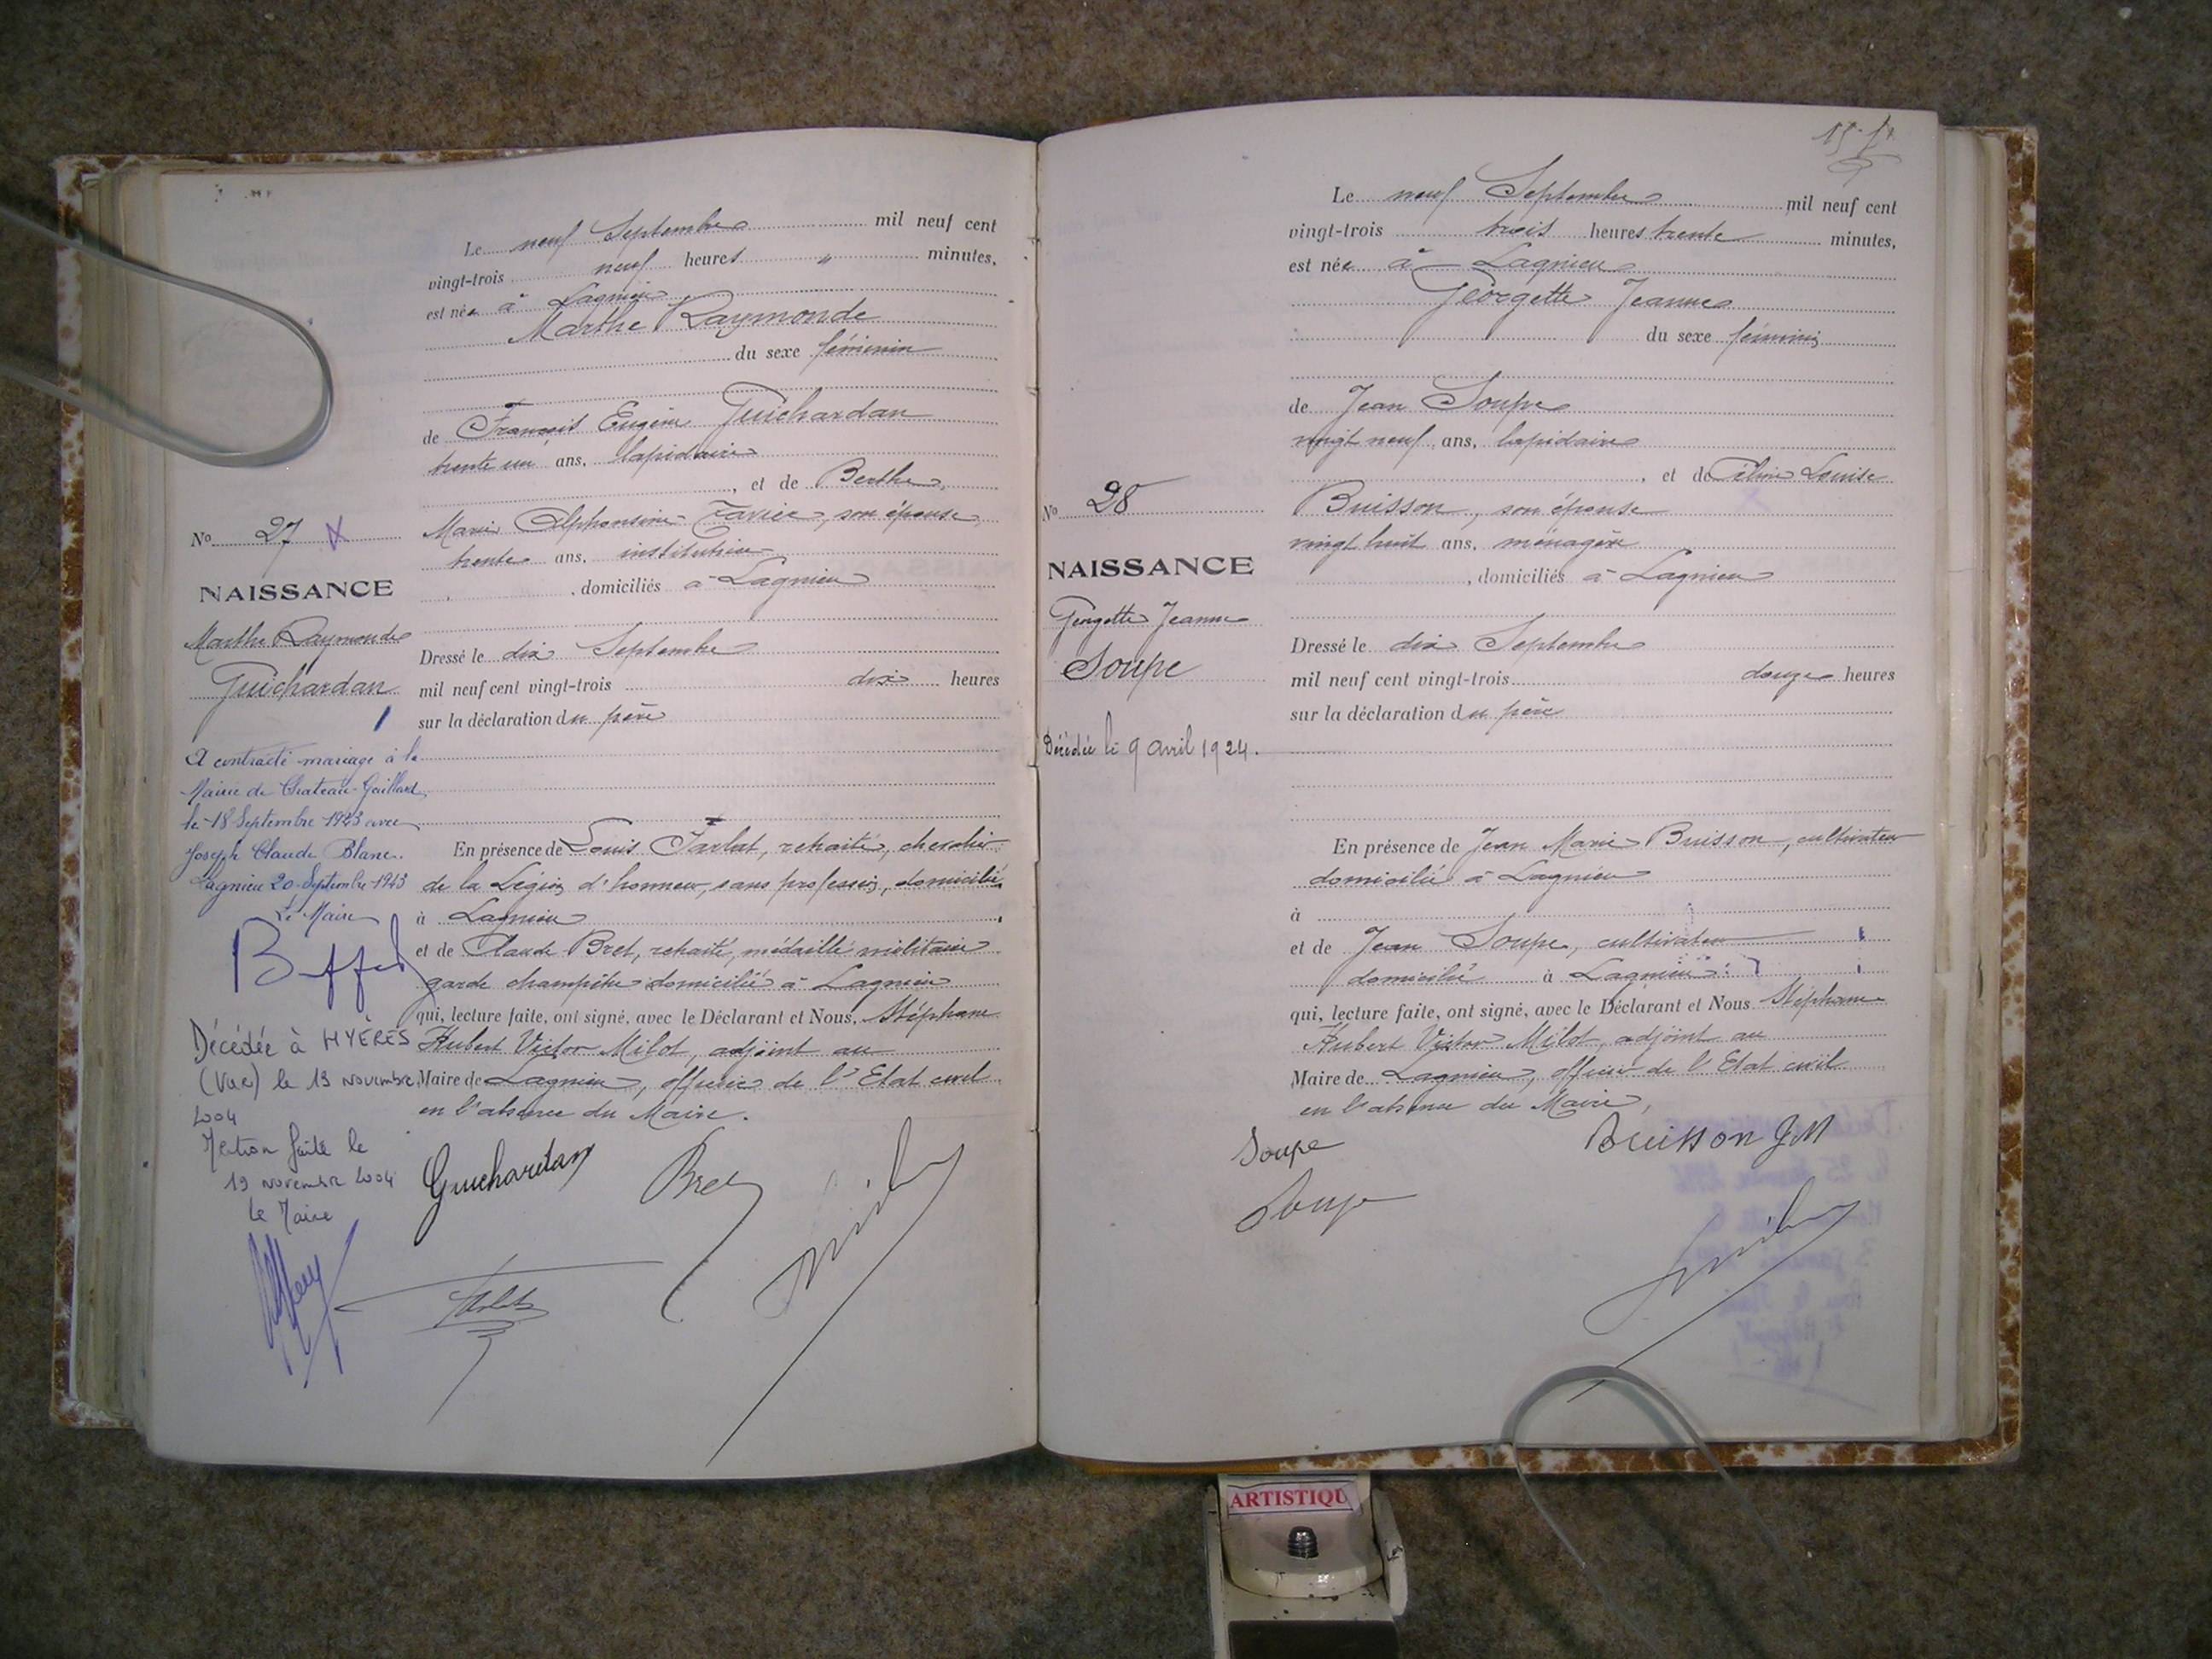 Le neuf Septembre mil neuf cent
vingt-trois neuf heures " minutes,
est née à Lagnieu
Marthe Raymonde
du sexe féminin
de François Eugène Guichardan
trente un ans, lapidaire
, et de Berthe
Marie Alphonsine Favier, son épouse
trente ans, institutrice
, domiciliés à Lagnieu
No 27 X
NAISSANCE
Marthe Raymonde
Guichardan
Dressé le dix Septembre
mil neuf cent vingt-trois dix heures
sur la déclaration du père
A contracté mariage à la
Mairie de Chateau-Gaillard
le 18 Septembre 1943 avec
Joseph Claude Blanc.
Lagnieu 20 Septembre 1943
Le Maire
En présence de Louis Tarlat, retraité, chevalier
de la Légion d'honneur, sans profession, domicilié
à Lagnieu
et de Claude Bret, retraité, médaillé militaire
garde champêtre domicilié à Lagnieu
qui, lecture faite, ont signé, avec le Déclarant et Nous, Stéphane
Hubert Victor Milot, adjoint au
Maire de Lagnieu, officier de l'Etat civil
en l'absence du Maire.
Décédée à HYÈRES
(Var) le 13 novembre
2004
Mention faite le
19 novembre 2004
Le Maire
Guichardan Bret
15
Le neuf Septembre mil neuf cent
vingt-trois trois heures trente minutes,
est née à Lagnieu
Georgette Jeanne
du sexe féminin
de Jean Soupe
vingt neuf ans, lapidaire
, et de Céline Louise
Buisson, son épouse
vingt huit ans, ménagère
, domiciliés à Lagnieu
No 28
NAISSANCE
Georgette Jeanne
Soupe
Décédée le 9 avril 1924.
Dressé le dix Septembre
mil neuf cent vingt-trois douze heures
sur la déclaration du père
En présence de Jean Marie Buisson, cultivateur
domicilié à Lagnieu
à
et de Jean Soupe, cultivateur
domicilié à Lagnieu
qui, lecture faite, ont signé, avec le Déclarant et Nous Stéphane
Hubert Victor Milot, adjoint au
Maire de Lagnieu, officier de l'Etat civil
en l'absence du Maire,
Soupe Buisson JM
Soupe
ARTISTIQU